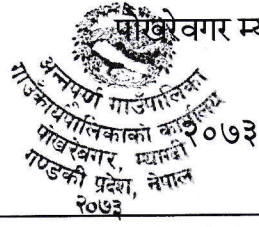 पोखरेवगर म्य
अन्नपूर्ण गाउँपालिका
गाउँकार्यपालिकाको कार्यालय
पोखरेबगर, म्याग्दी
२०७३
गण्डकी प्रदेश, नेपाल
२०७३